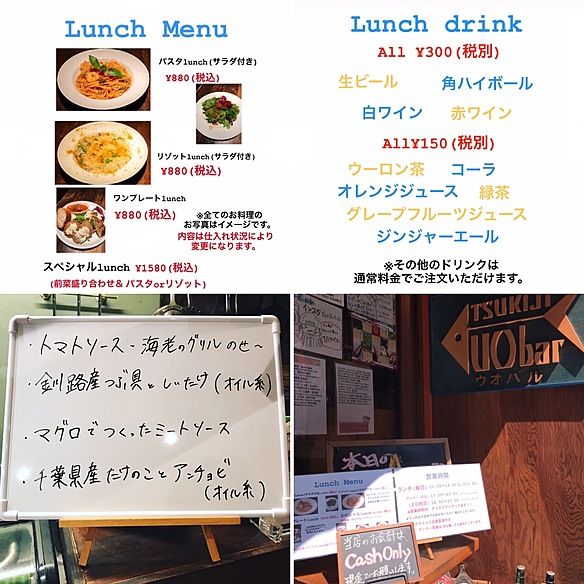 Lunch Menu
パスタlunch(サラダ付き)
¥880(税込)
リゾットlunch(サラダ付き)
¥880(税込)
ワンプレートlunch
¥880(税込)
※全てのお料理の
お写真はイメージです。
内容は仕入れ状況により
変更になります。
スペシャルlunch ¥1580(税込)
(前菜盛り合わせ&パスタorリゾット)
Lunch drink
All ¥300(税別)
生ビール 角ハイボール
白ワイン 赤ワイン
All¥150(税別)
ウーロン茶 コーラ
オレンジジュース 緑茶
グレープフルーツジュース
ジンジャーエール
※その他のドリンクは
通常料金でご注文いただけます。
・トマトソース~海老のグリルのせ~
・釧路産つぶ貝としいたけ(オイル系)
・マグロでつくったミートソース
・千葉県産たけのことアンチョビ
(オイル系)
TSUKIJI
UObar
ウオバル
本日の
Lunch Menu
営業時間
当店のお会計は
Cash Only
現金でお願いします。